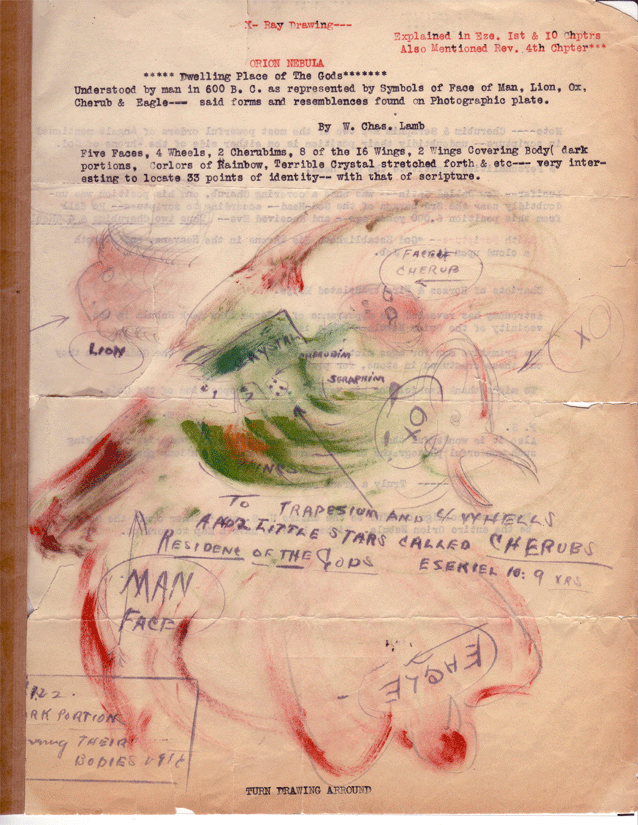 X- Ray Drawing---
Explained in Eze. 1st & 10 Chptrs
Also Mentioned Rev. 4th Chpter***
ORION NEBULA
***** Dwelling Place of The Gods*******
Understood by man in 600 B. C. as represented by Symbols of Face of Man, Lion, Ox,
Cherub & Eagle--- said forms and resemblences found on Photographic plate.
By W. Chas. Lamb
Five Faces, 4 Wheels, 2 Cherubims, 8 of the 16 Wings, 2 Wings Covering Body( dark
portions, Corlors of Rainbow, Terrible Crystal stretched forth & etc--- very inter-
esting to locate 33 points of identity-- with that of scripture.
FACE OF
CHERUB
LION
OX
CRYSTAL
CHERUBIM
SERAPHIM
#1
#2
OX
WINGS
TO TRAPESIUM AND 4 WHELLS
AND 2 LITTLE STARS CALLED CHERUBS
RESIDENC OF THE GODS
ESEKIEL 10: 9 VRS
MAN
FACE
EAGLE
PORTION
THEIR
BODIES
TURN DRAWING ARROUND